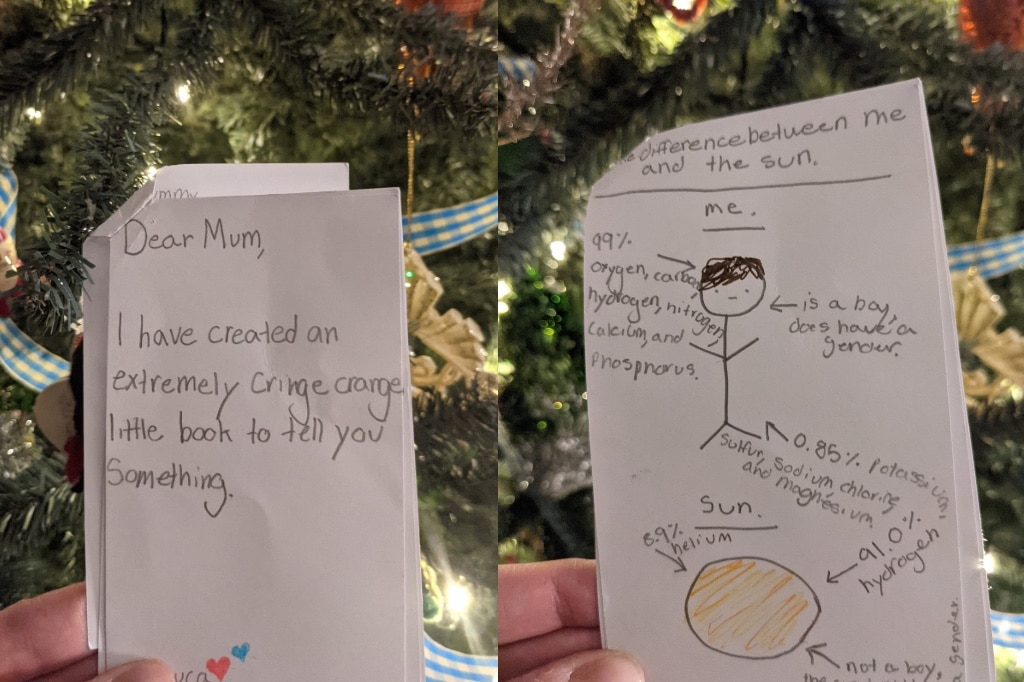 Dear Mum,
I have created an
extremely cringe crange
little book to tell you
Something.
difference between me
and the sun.
me.
99%
oxygen, carbon,
hydrogen, nitrogen,
calcium, and
Phosphorus.
is a boy,
does have a
gender.
0.85% Potassium,
Sulfur, Sodium, chlorine,
and magnesium.
Sun.
8.9%
helium
91.0%
hydrogen
not a boy,
a gender.